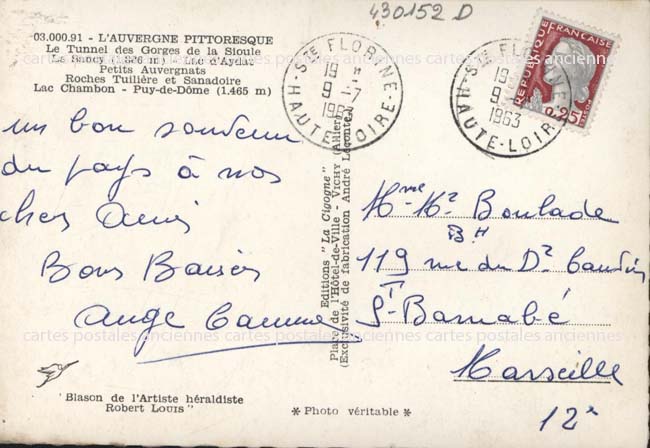 430152 D
03.000.91 - L'AUVERGNE PITTORESQUE
Le Tunnel des Gorges de la Sioule
Le Sancy (1.886 m) - Lac d'Aydat
Petits Auvergnats
Roches Tuilière et Sanadoire
Lac Chambon - Puy-de-Dôme (1.465 m)
STE FLORINE
19 H
9 - 7
1963
HAUTE-LOIRE
STE FLORINE
19
9
1963
HAUTE-LOIRE
REPUBLIQUE FRANÇAISE
0,25
POSTES
cartes postales anciennes cartes postales anciennes cartes postales anciennes
un bon souvenir
du pays à nos
chers Amis
Bons Baisers
Ange
Editions "La Cigogne"
Place de l'Hôtel-de-Ville - VICHY (Allier)
(Exclusivité de fabrication André Leconte)
Mme Mr Boulade
Bt H
119 rue du Dr
St Barnabé
Marseille
12e
cartes postales anciennes cartes postales anciennes cartes postales anciennes
"Blason de l'Artiste héraldiste
Robert LOUIS"
* Photo véritable *